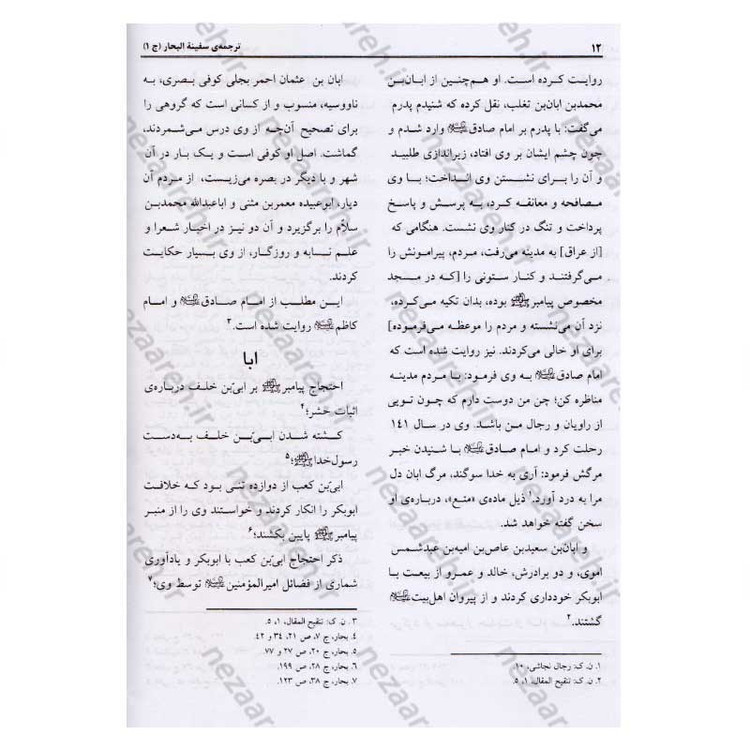 ۱۲
ترجمه‌ی سفینة البحار (ج ۱)
روایت کرده است. او هم‌چنین از ابان‌بن
محمدبن ابان‌بن تغلب، نقل کرده که شنیدم پدرم
می‌گفت: با پدرم بر امام صادق وارد شدم و
چون چشم ایشان بر وی افتاد، زیراندازی طلبید
و آن را برای نشستن وی انداخت؛ با وی
مصافحه و معانقه کرد، به پرسش و پاسخ
پرداخت و تنگ در کنار وی نشست. هنگامی که
[از عراق] به مدینه می‌رفت، مردم، پیرامونش را
می‌گرفتند و کنار ستونی را [که در مسجد
مخصوص پیامبرﷺ بوده، بدان تکیه می‌کرده،
نزد آن می‌نشسته و مردم را موعظه می‌فرموده]
برای او خالی می‌کردند. نیز روایت شده است که
امام صادق به وی فرمود: با مردم مدینه
مناظره کن؛ چن من دوست دارم که چون تویی
از راویان و رجال من باشد. وی در سال ۱۴۱
رحلت کرد و امام صادق با شنیدن خبر
مرگش فرمود: آری به خدا سوگند، مرگ ابان دل
مرا به درد آورد.۱ ذیل ماده‌ی «متع»، درباره‌ی او
سخن گفته خواهد شد.
و ابان‌بن سعیدبن عاص‌بن امیه‌بن عبدشمس
اموی، و دو برادرش، خالد و عمرو از بیعت با
ابوبکر خودداری کردند و از پیروان اهل‌بیت
گشتند.۲
۱. ن. ک: رجال نجاشی، ۱۰.
۲. ن. ک: تنقیح المقال، ۱، ۵.
ابان بن عثمان احمر بجلی کوفی بصری، به
ناووسیه، منسوب و از کسانی است که گروهی را
برای تصحیح آن‌چه از وی درس می‌شمردند،
گماشت. اصل او کوفی است و یک بار در آن
شهر و با دیگر در بصره می‌زیست، از مردم آن
دیار، ابوعبیده معمربن مثنی و اباعبدالله محمدبن
سلاّم را برگزیرد و آن دو نیز در اخبار شعرا و
علم نسابه و روزگار، از وی بسیار حکایت
کردند.
این مطلب از امام صادق و امام
کاظم روایت شده است.۳
ابا
احتجاج پیامبرﷺ بر ابیّ‌بن خلف درباره‌ی
اثبات حشر؛۴
کشته شدن ابیّ‌بن خلف به‌دست
رسول‌خداﷺ؛۵
ابیّ‌بن کعب از دوازده تنی بود که خلافت
ابوبکر را انکار کردند و خواستند وی را از منبر
پیامبرﷺ پایین بکشند؛۶
ذکر احتجاج ابیّ‌بن کعب با ابوبکر و یادآوری
شماری از فضائل امیرالمؤمنین توسط وی؛۸
۳. ن. ک: تنقیح المقال، ۱، ۵.
۴. بحار، ج ۷، ص ۲۱، ۳۴ و ۴۲
۵. بحار، ج ۲۰، ص ۲۷ و ۷۷.
۶. بحار، ج ۲۸، ص ۱۹۹.
۷. بحار، ج ۳۸، ص ۱۲۳.
nezaareh.ir